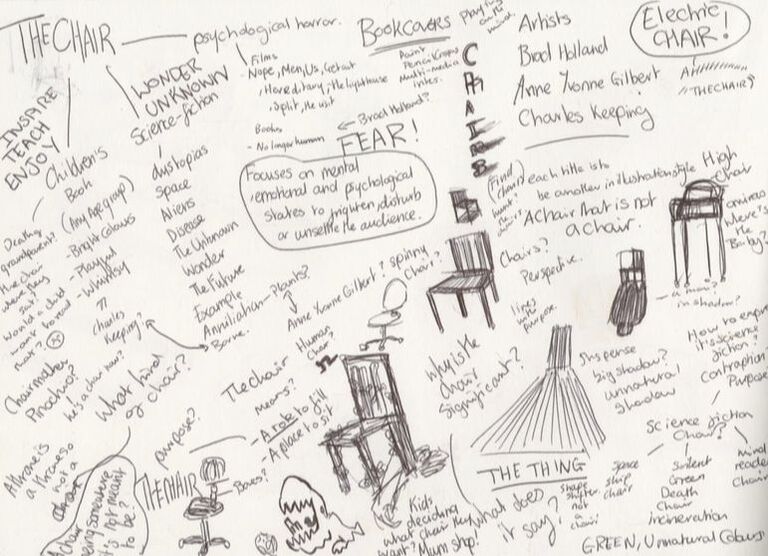 THE CHAIR
psychological horror.
Films
- Nope, Men, Us, Get out
, Hereditary, The lighthouse
, Split, The visit
Books
- No longer human
← Brad Holland?
FEAR!
Focuses on mental
, emotional and psychological
states to frighten, disturb
or unsettle the audience.
Bookcovers
Paint
Multi-media
inks.
playing
on the
mind.
C
H
A
I
R
Artists
Brad Holland
Anne Yvonne Gilbert
Charles Keeping
Electric
CHAIR!
"THECHAIR"
INSPIRE
TEACH
ENJOY
WONDER
UNKNOWN
Science-fiction
dystopias
Space
Aliens
Disease
The Unknown
Wonder
The Future
Example
Annihilation - Plants?
Borne.
Children's
Book
(Any Age group)
- Bright Colours
- Playful
- Whimsy
Charles
Keeping?
Death?
grandparent?
the chair
where they
sat?
would a child
want to read
that?
Chairmaker
Pinochio?
he's a chair now?
What kind
of chair?
Anne Yvonne Gilbert?
spinny
chair?
Human
Chair
The chair
means?
- A role to fill
- A place to sit
purpose?
THE CHAIR
Boxes?
A throne is
a throne so
not a
chair
A chair
being something
it's not meant
to be?
each title is to
be another in illustration style
A chair that is not
a chair.
High
Chair
where's
the
Baby?
Chairs?
Perspective.
lines
with
purpose.
in shadow?
Why is the
chair
significant?
Suspense
big shadow?
unnatural
shadow
Science fiction?
contraption?
Purpose
Science fiction
Chair?
space
ship
chair
Soilent
Green
Death
Chair
incineration
mind
reader
chair
GREEN, Unnatural Colours
THE THING
shape
shifter.
not
a
chair!
what does
it say?
Kids
deciding
what chair they
want? Mum shop!